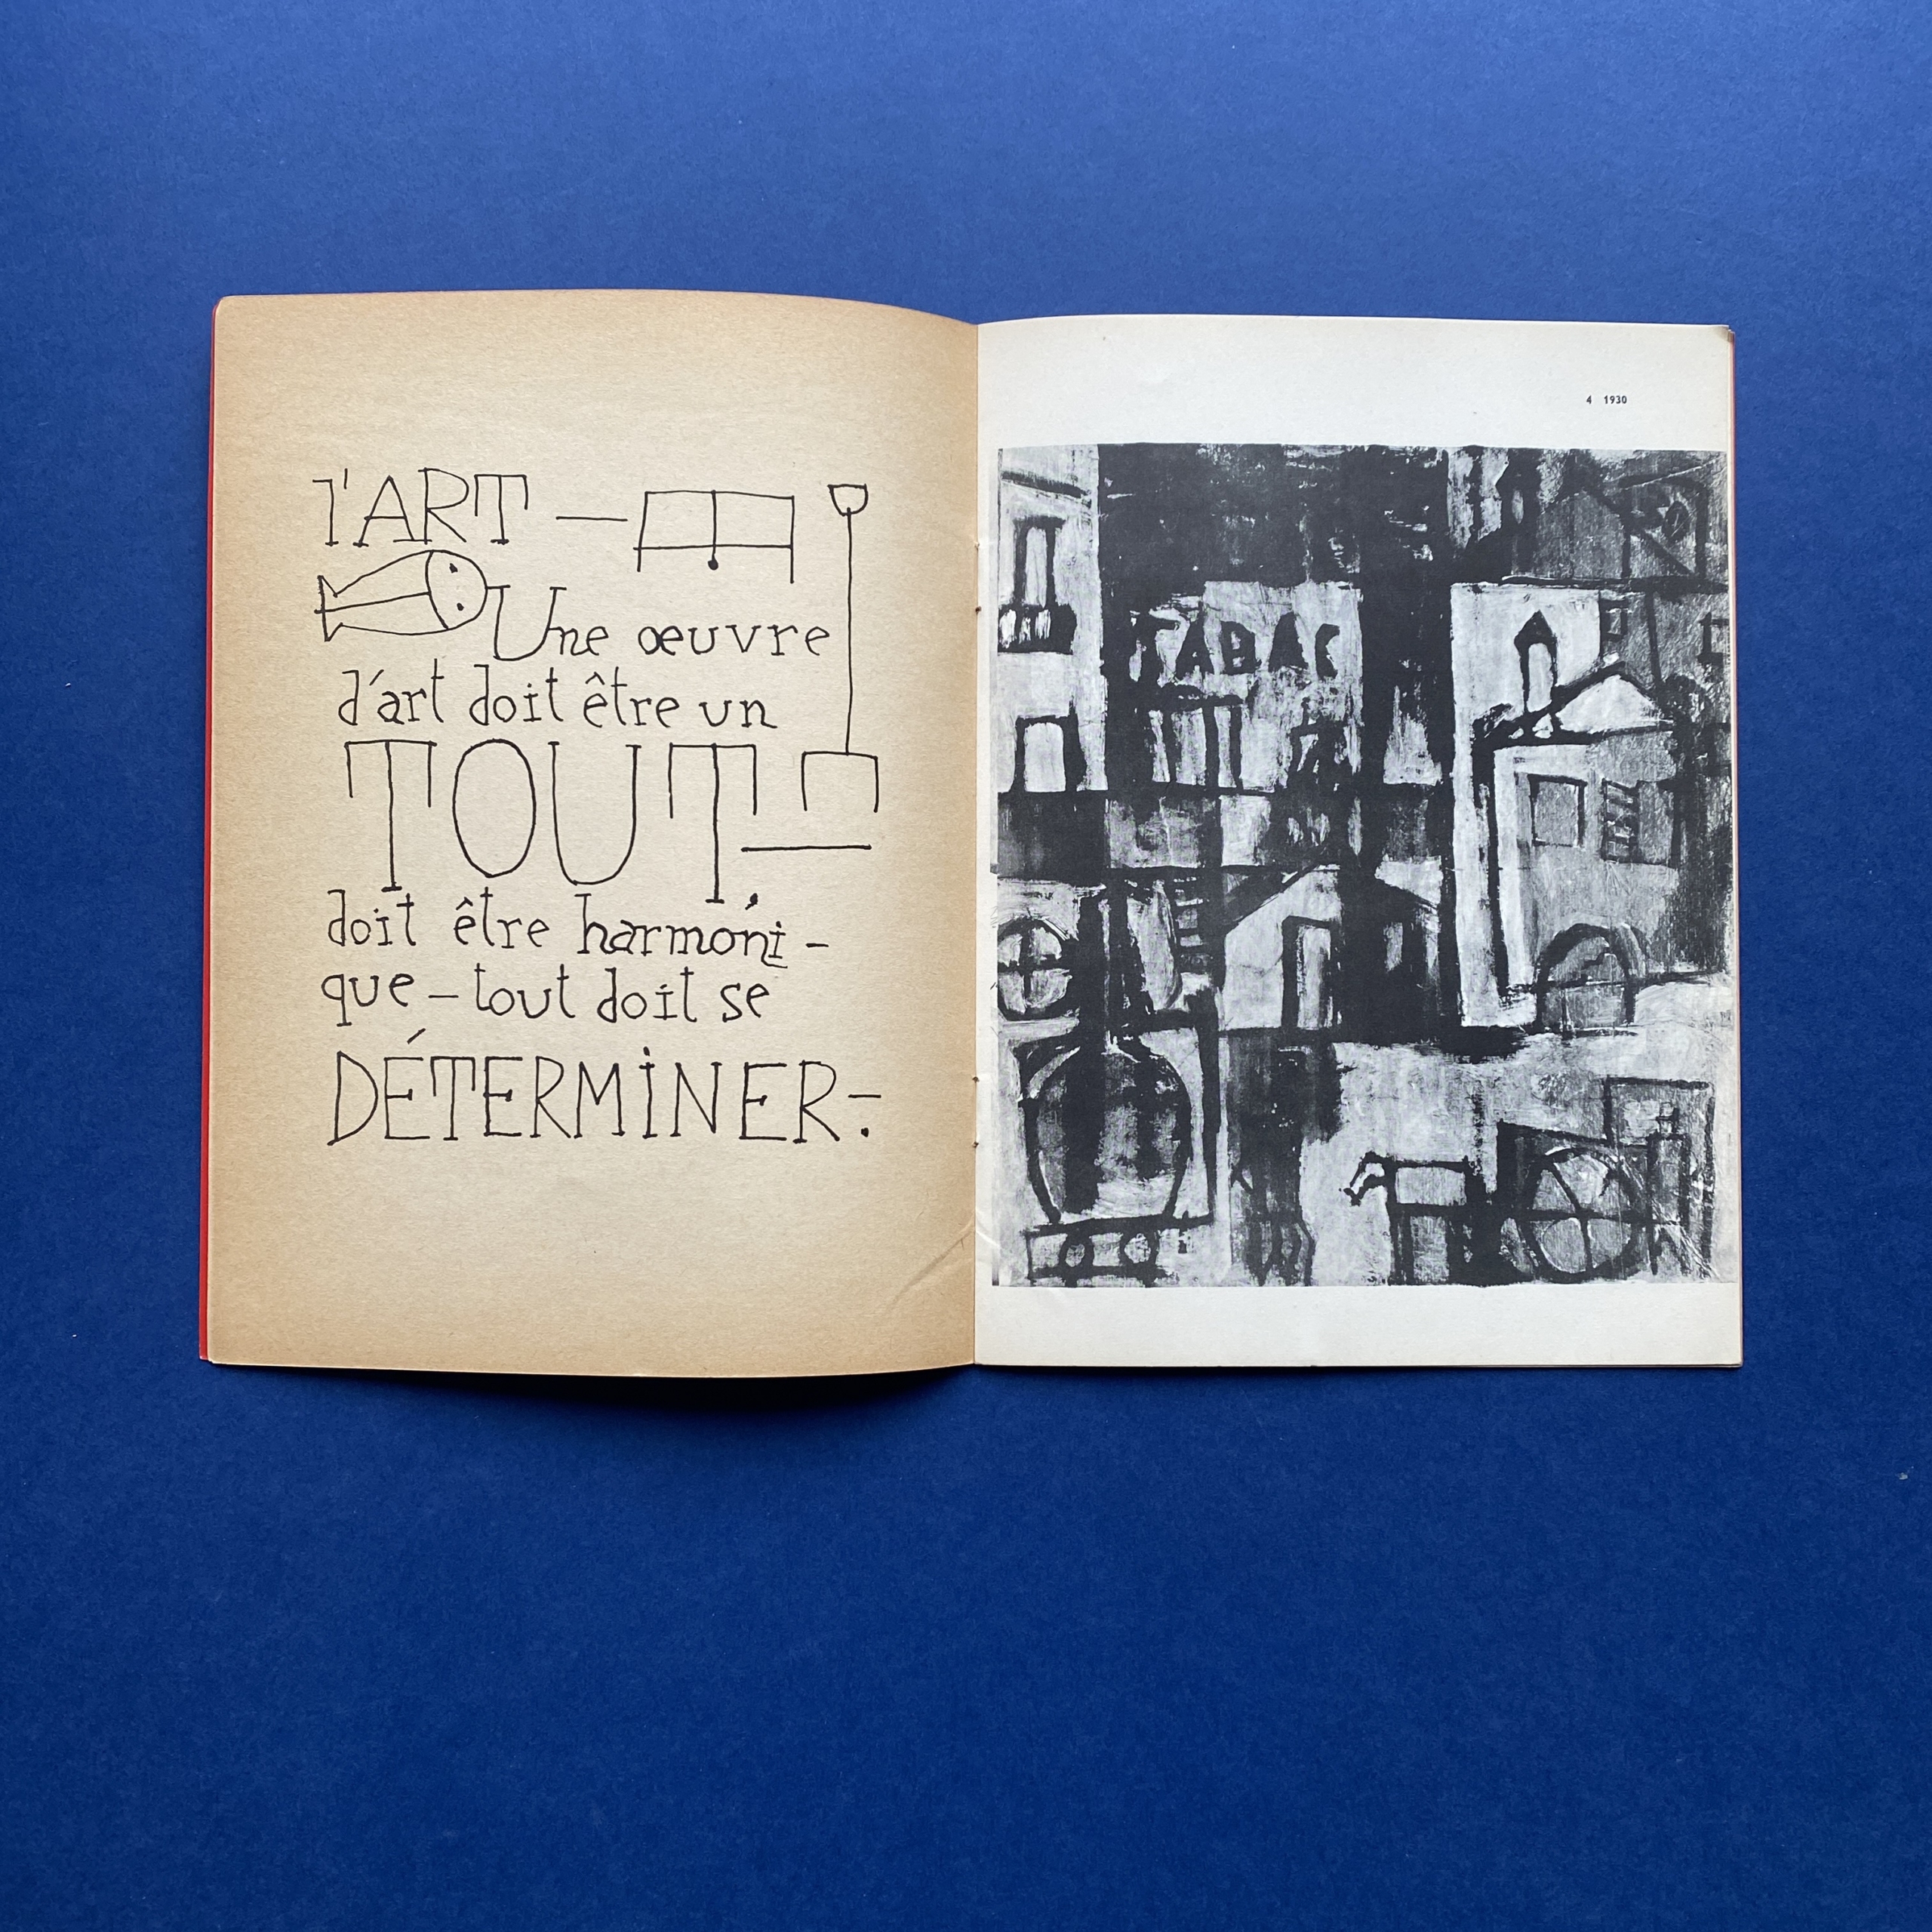 l'ART —
Une œuvre
d'art doit être un
TOUT,—
doit être harmoni-
que – tout doit se
DÉTERMINER.–
4 1930
TABAC